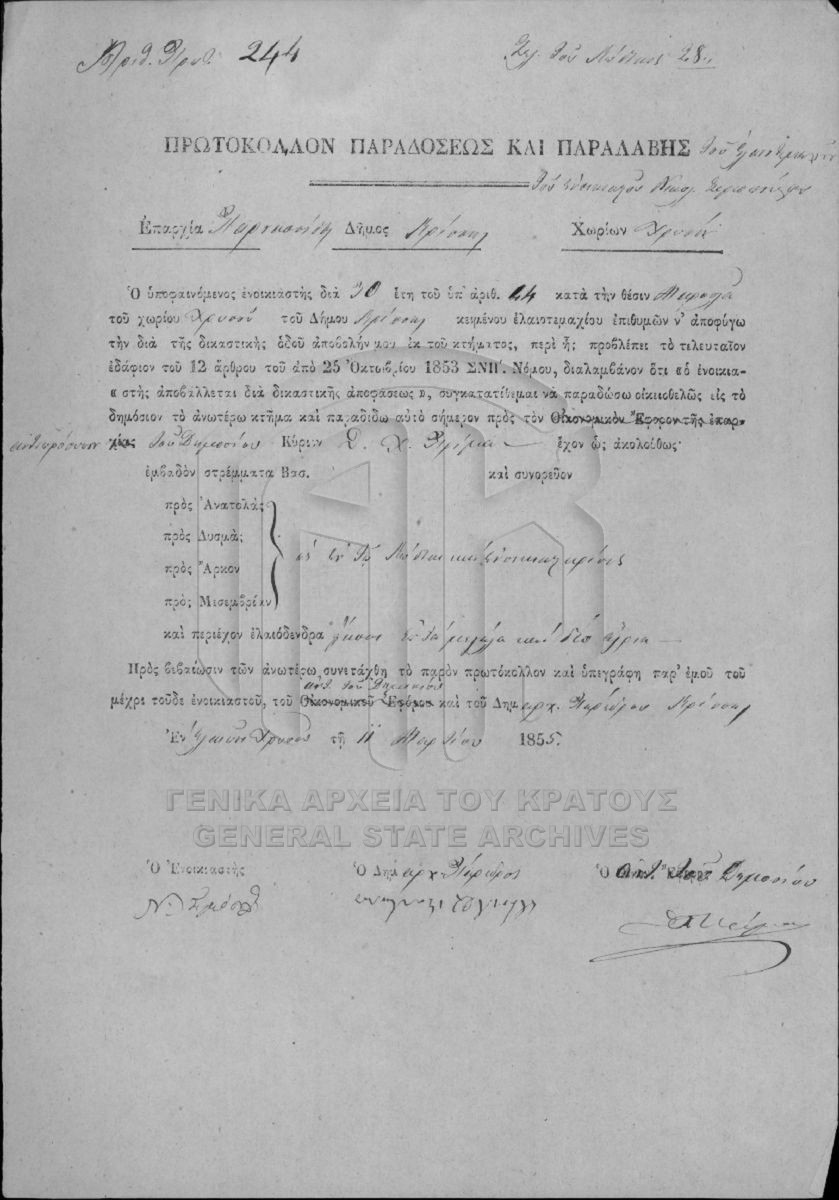 Ἀριθ. Πρωτ. 244
Σελ. τοῦ 28
ΠΡΩΤΟΚΟΛΛΟΝ ΠΑΡΑΔΟΣΕΩΣ ΚΑΙ ΠΑΡΑΛΑΒΗΣ τοῦ
τοῦ
Ἐπαρχία Παρνασίδος Δῆμος Κρίσσης Χωρίον Χρυσοῦ
Ὁ ὑποφαινόμενος ἐνοικιαστὴς διὰ 30 ἔτη τοῦ ὑπ' ἀριθ. 24 κατὰ τὴν θέσιν
τοῦ χωρίου Χρυσοῦ τοῦ Δήμου Κρίσσης κειμένου ἐλαιοτεμαχίου ἐπιθυμῶν ν' ἀποφύγω
τὴν διὰ τῆς δικαστικῆς ὁδοῦ ἀποβολήν μου ἐκ τοῦ κτήματος, περὶ ἧς προβλέπει τὸ τελευταῖον
ἐδάφιον τοῦ 12 ἄρθρου τοῦ ἀπὸ 25 Ὀκτωβρίου 1853 ΣΝΠ'. Νόμου, διαλαμβάνον ὅτι «ὁ ἐνοικια-
« στὴς ἀποβάλλεται διὰ δικαστικῆς ἀποφάσεως», συγκατατίθεμαι νὰ παραδώσω οἰκειοθελῶς εἰς τὸ
δημόσιον τὸ ἀνωτέρω κτῆμα καὶ παραδίδω αὐτὸ σήμερον πρὸς τὸν Οἰκονομικὸν Ἔφορον τῆς ἐπαρ-
χίας τοῦ Δημοσίου Κύριον Δ. Χ. ἔχον ὡς ἀκολούθως·
ἐμβαδὸν στρέμματα Βασ. καὶ συνορεῦον
πρὸς Ἀνατολὰς
πρὸς Δυσμὰς
πρὸς Ἄρκτον
πρὸς Μεσεμβρίαν
ὡς ἐν τῷ
καὶ περιέχον ἐλαιόδενδρα εἴκοσι ἑπτὰ μεγάλα καὶ δύο ἄγρια
Πρὸς βεβαίωσιν τῶν ἀνωτέρω συνετάχθη τὸ παρὸν πρωτόκολλον καὶ ὑπεγράφη παρ' ἐμοῦ τοῦ
ἀντ. τοῦ Δημοσίου
μέχρι τοῦδε ἐνοικιαστοῦ, τοῦ Οἰκονομικοῦ Ἐφόρου καὶ τοῦ Δημαρχ. Παρέδρου Κρίσσης
Ἐν Χρυσοῦ τῇ 11 Μαρτίου 1855
ΓΕΝΙΚΑ ΑΡΧΕΙΑ ΤΟΥ ΚΡΑΤΟΥΣ
GENERAL STATE ARCHIVES
Ὁ Ἐνοικιαστὴς Ὁ Δημαρχ. Πάρεδρος Ὁ ἀντ. τοῦ Δημοσίου